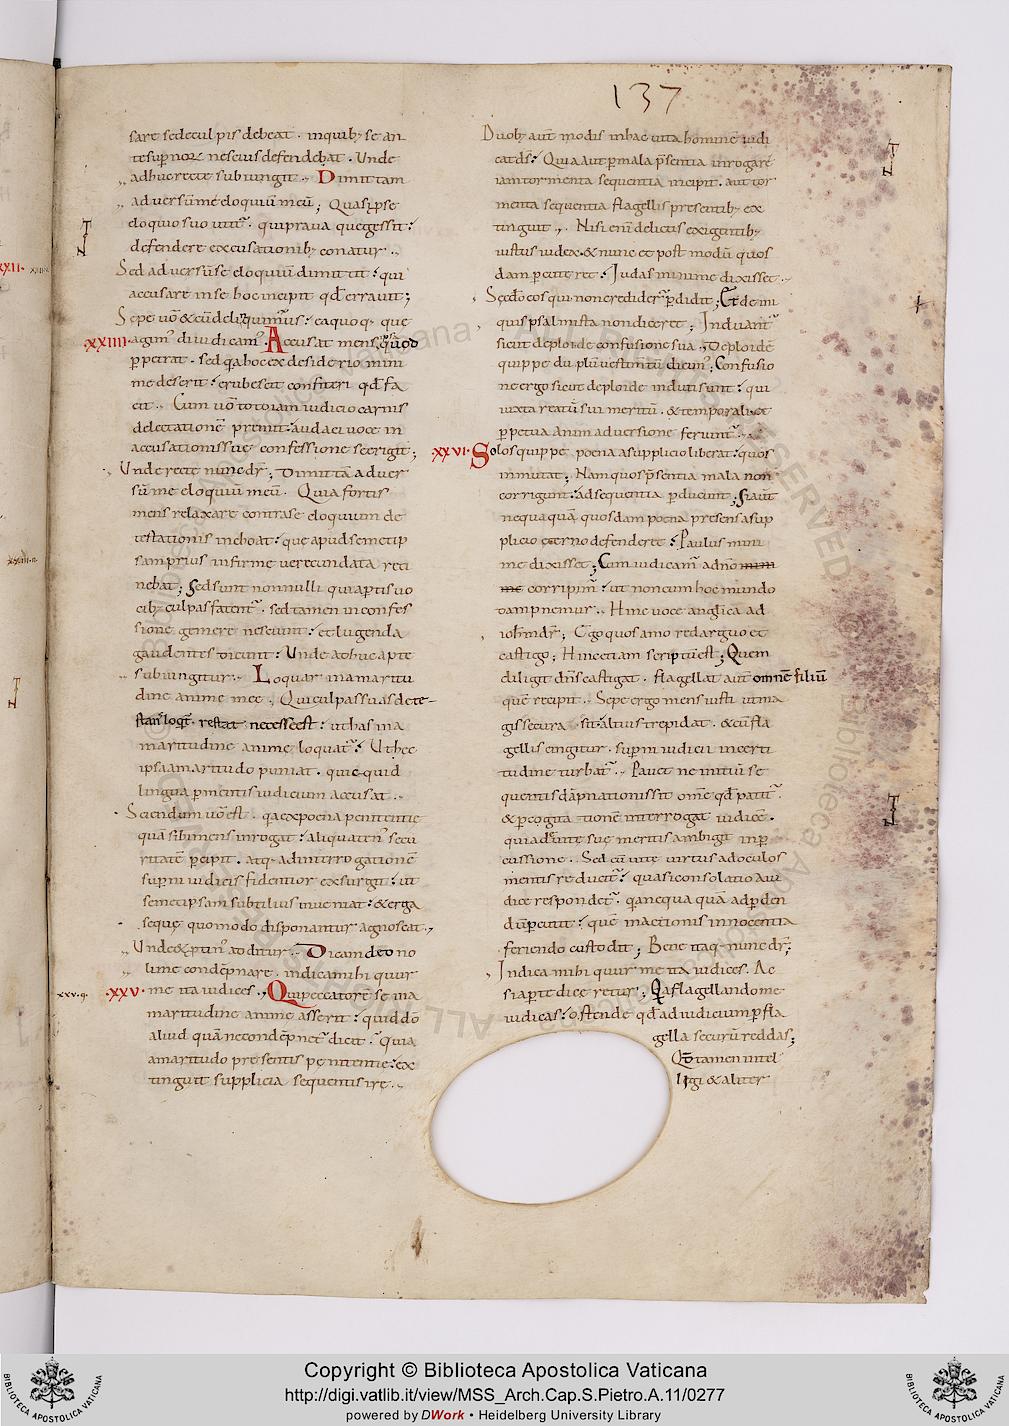 137
sare sedeculpis debeat. inquib; se an
te sup̄nor̄ nescius defendebat. Unde
adhuc recte subiungit. Dimittam
adversū me eloquiū meū; Quasi ipse
eloquio suo utit̄. qui prava que gessit:
defendere excusationib; conatur.
Sed adversū se eloquiū dimittit: qui
accusare in se hoc incipit qđ erravit;
Sepe uō & cū delinquimus: ea quoq; que
xxiiii. agim̄ diiudicam̄. Accusat mens quod
p̄petrat. sed q̄a hoc ex desiderio mini
me deserit: erubescit confiteri qđ fa
cit. Cum uō toto iam iudicio carnis
delectationē premit: audaci voce in
accusationis suę confessione se erigit;
Unde recte nunc dr̄; Dimittā adver
sū me eloquiū meū. Quia fortis
mens relaxare contra se eloquium de
testationis inchoat: que apud semetip
sam prius infirme verecundata reti
nebat; Sed sunt nonnulli qui aptis vo
cib; culpas fatent̄. sed tamen in confes
sione gemere nesciunt: et lugenda
gaudentes dicunt: Unde adhuc apte
subiungitur. Loquar in amaritu
dine anime mee. Qui culpas suas dete-
stans loqt̄. restat necesse est: ut has in a
maritudine anime loquat̄: Ut hec
ipsa amaritudo puniat. quicquid
lingua p̄ mentis iudicium accusat.
Sciendum uō est. q̄a ex poena penitentie
quā sibi mens inrogat: aliquaten̄ secu
ritatē p̄cipit. atq; ad interrogationē
sup̄ni iudicis fidentior exsurgit: ut
semetipsam subtilius inveniat: & erga
se quę quomodo disponantur agnoscat,
Unde & p̄tin̄ additur. Dicam deo no
li me condēpnare. indica mihi quur
xxv. me ita iudices, Qui peccatorē se in a
maritudine anime asserit: quid dō
aliud quā ne condēpnet̄ dicit: Quia
amaritudo presentis pęnitentie: ex
tinguit supplicia sequentis irę.
Duob; aut̄ modis in hac uita hominē iudi
cat d̄s: Quia aut p̄ mala p̄sentia inrogare
iam tormenta sequentia incipit. aut tor
menta sequentia flagellis presentib; ex
tinguit. Nisi enī delictis exigentib;
iustus iudex. & nunc et post modū quos
dam p̄cuteret: Judas minime dixisset.
Secdō eos qui non crediderr̄ p̄didit; Et de ini
quis psalmista non diceret; Induant̄
sicut deploide confusione sua, Deploide
quippe duplū vestimtū dicim̄; Confusio
ne ergo sicut deploide induti sunt: qui
iuxta reatū sui meritū. & temporali et
p̄petua animadversione feriunt̄.
xxvi. Solos quippe poena a supplicio liberat: quos
inmutat; Nam quos p̄sentia mala non
corrigunt: ad sequentia p̄ducunt; Si aut̄
nequaquā quosdam poena presens a sup
plicio eterno defenderet: Paulus mini
me dixisset; Cum iudicam̄ a dno
corripim̄: ut non cum hoc mundo
dampnemur. Hinc voce anglica ad
ioh̄m dr̄; Ego quos amo redarguo et
castigo; Hinc etiam scriptū est; Quem
diligit dn̄s castigat. flagellat aut̄ omnē filiū
quē recipit. Sepe ergo mens iusti ut ma
gis secura sit: altius trepidat. & cū fla
gellis cingitur. sup̄ni iudicii incerti
tudine turbat̄. Pavet ne initiū se
quentis dāpnationis sit omē qđ patit̄.
& p̄ cogitationē interrogat iudicē.
quia de vite sue meritis ambigit in p̄
cussione. Sed cū vite virtus ad oculos
mentis reducit̄: quasi consolatio a iu
dice respondet̄. q̄a nequaquā ad p̄den
dū p̄cutit: quē in actionis innocentia
feriendo custodit; Bene itaq; nunc dr̄;
Indica mihi quur me ita iudices. Ac
si ap̄te diceretur; Q̄a flagellando me
iudicas: ostende qđ ad iudicium p̄ fla
gella securū reddas;
Qđ tamen intel
ligi & aliter